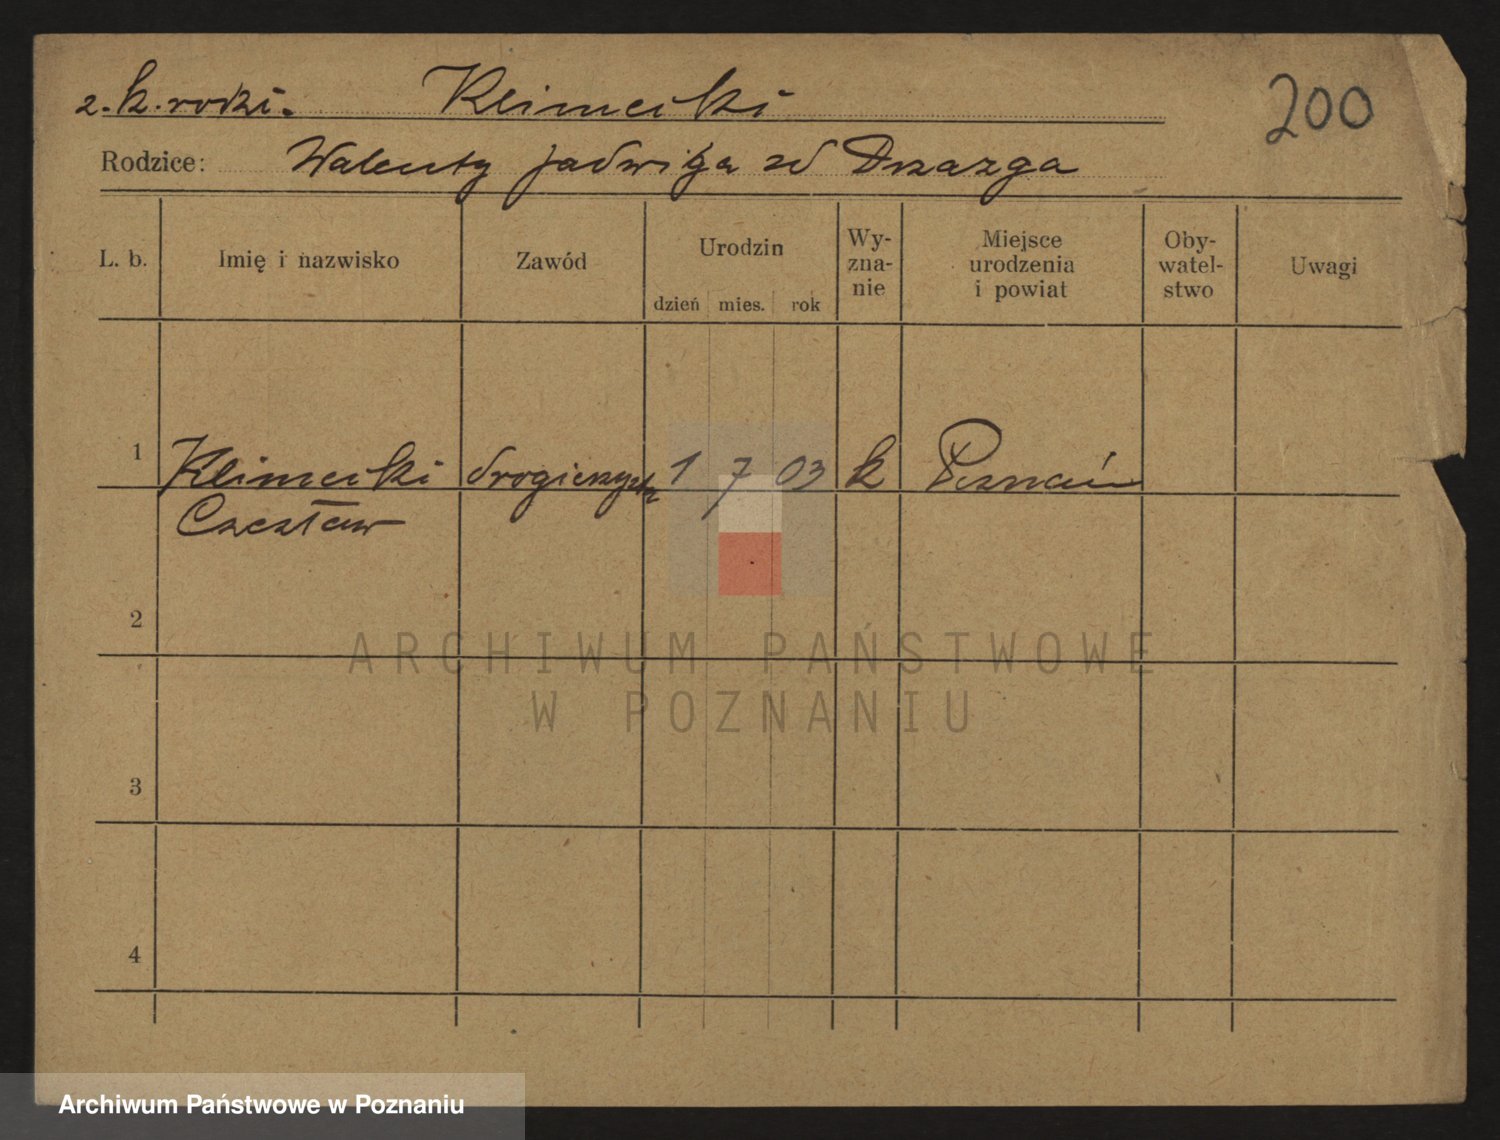 z. k. rodzi. Klimecki 200
Rodzice: Walenty Jadwiga zd Drzazga
L. b. Imię i nazwisko Zawód Urodzin dzień mies. rok Wy-zna-nie Miejsce urodzenia i powiat Oby-watel-stwo Uwagi
1 Klimecki drogierzysta 1 7 03 k Poznań
Czesław
2
ARCHIWUM PAŃSTWOWE
W POZNANIU
3
4
Archiwum Państwowe w Poznaniu